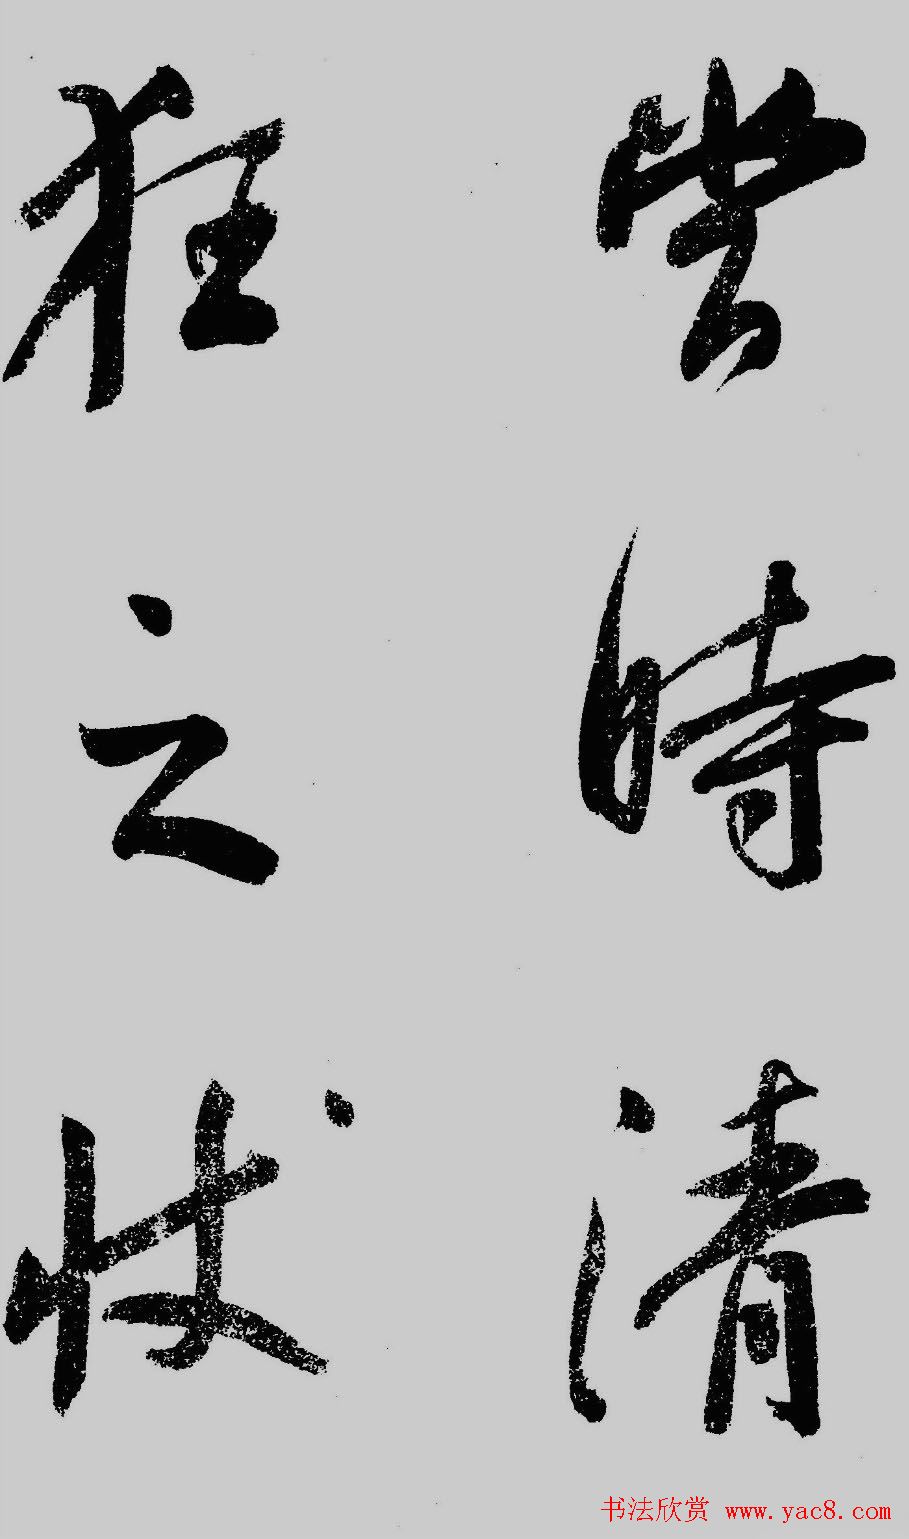 當時清
狂之狀
书法欣赏 www.yac8.com